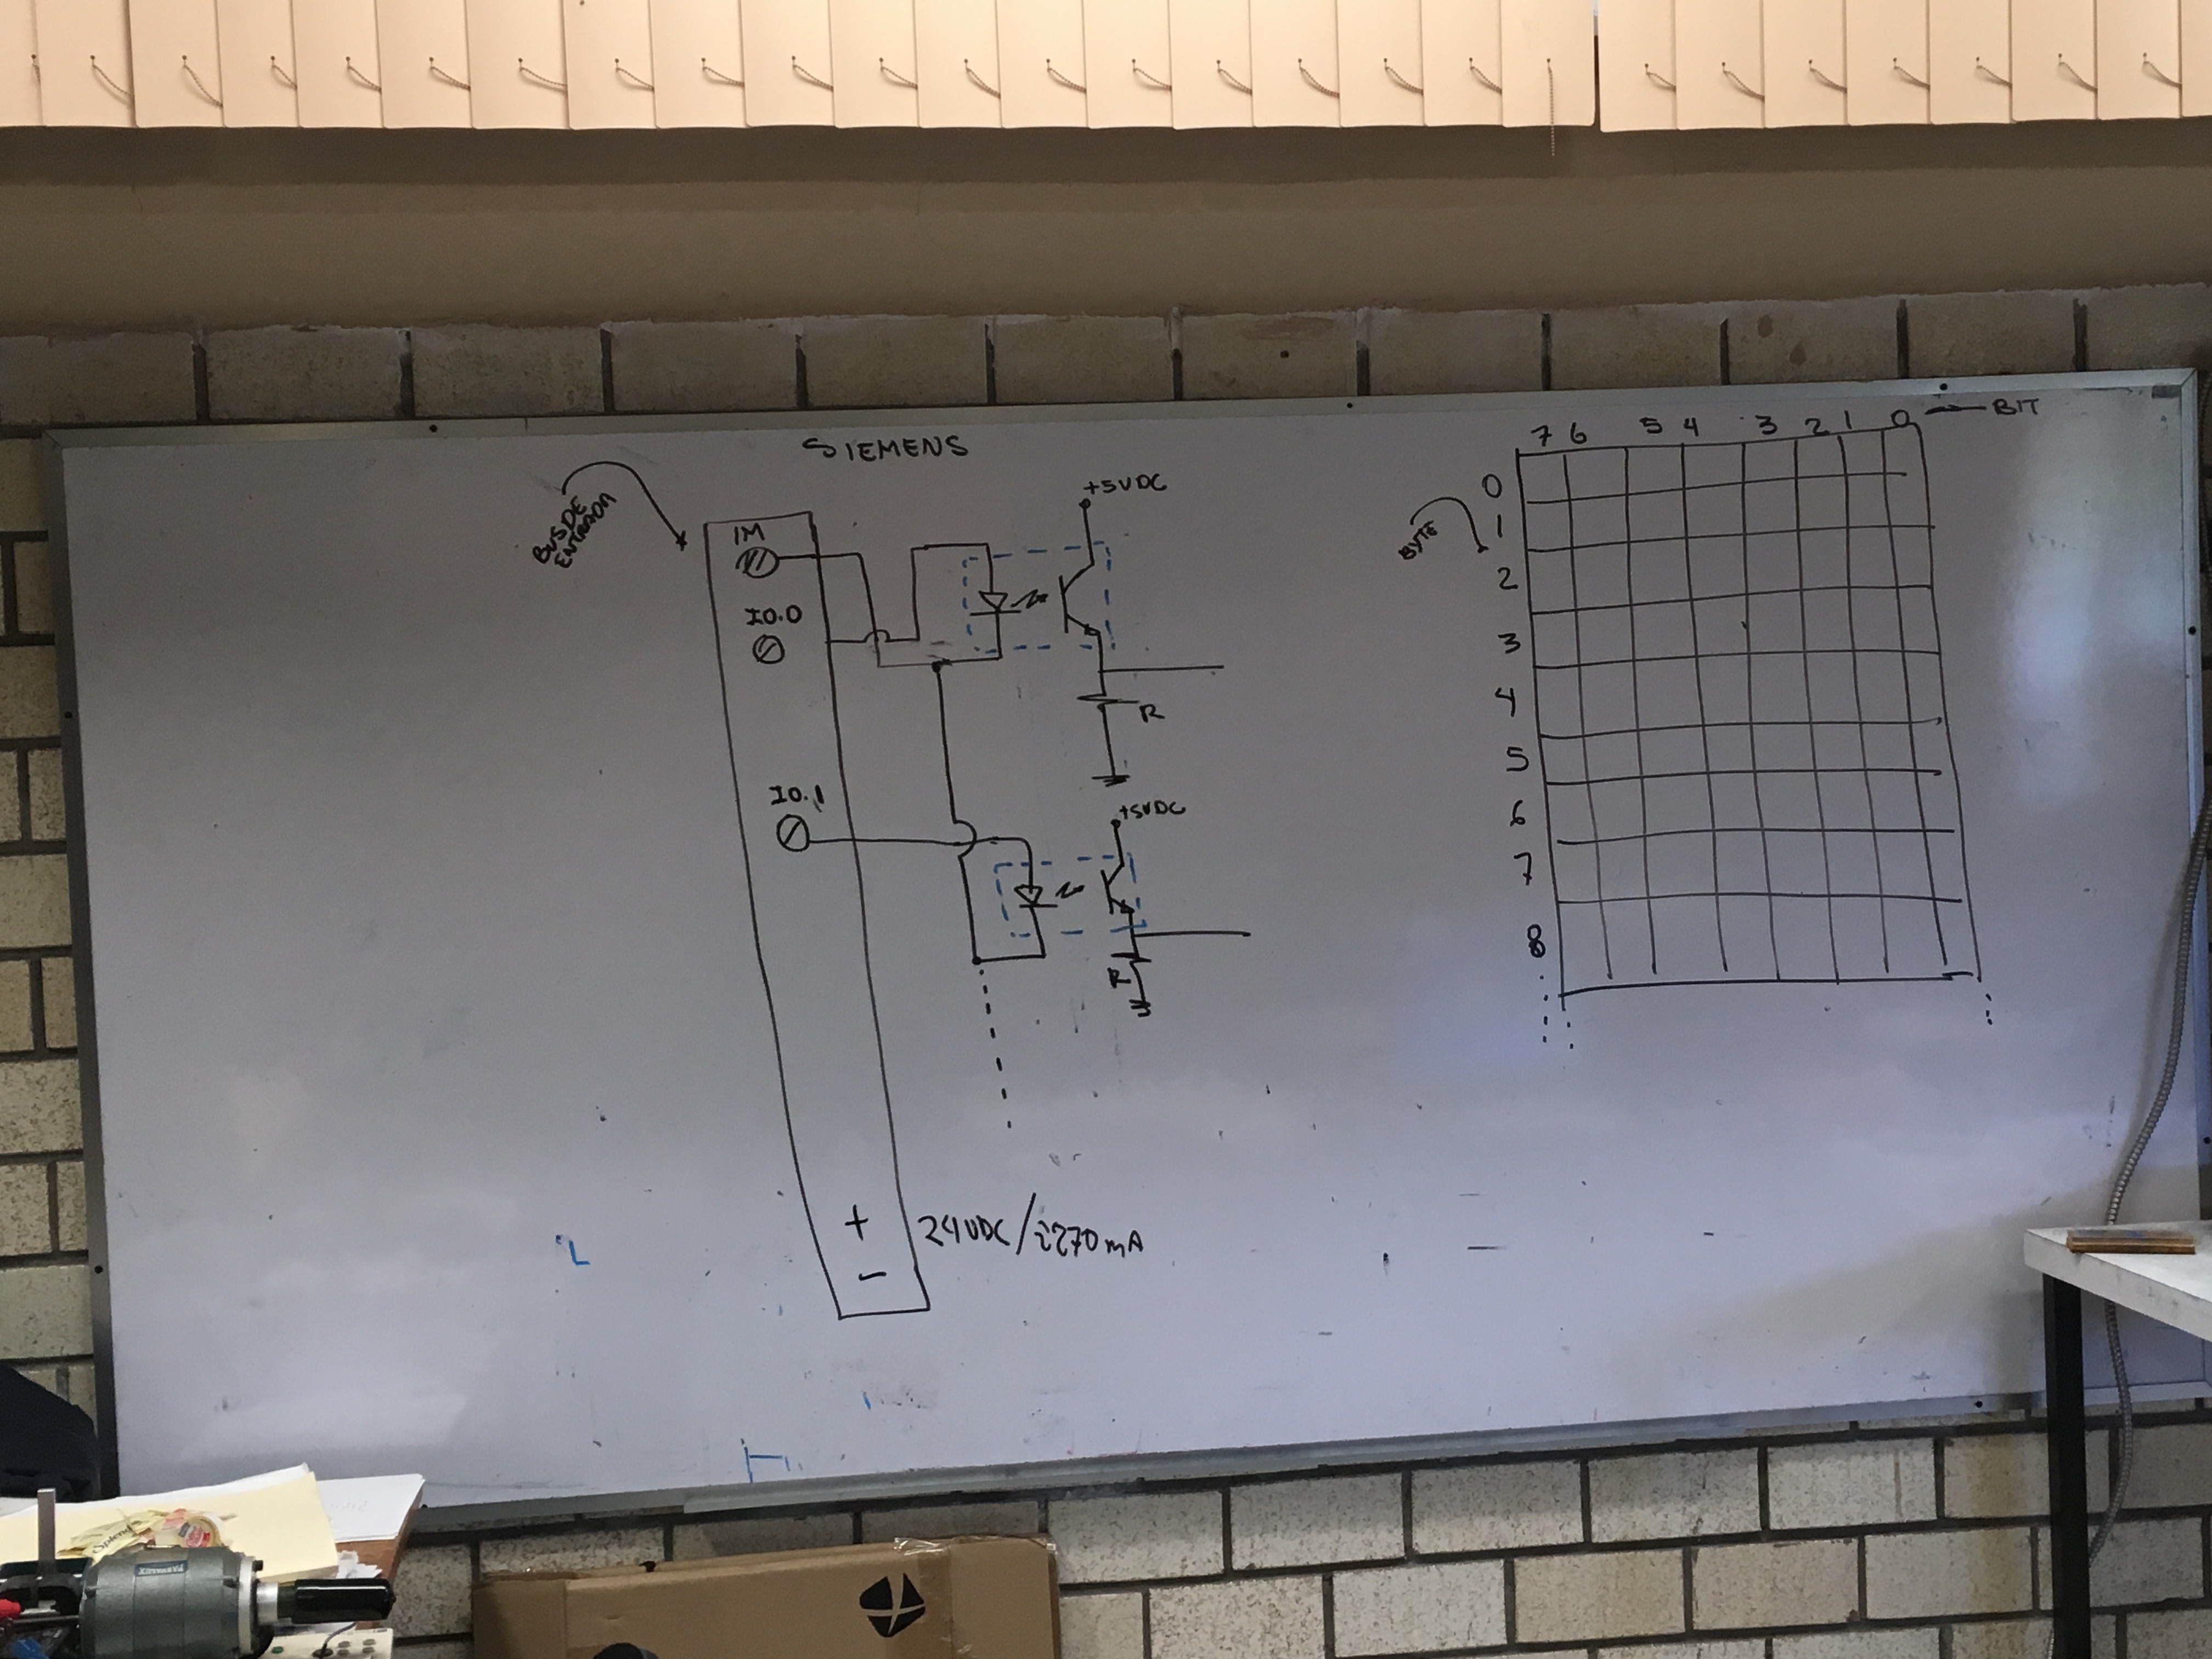 SIEMENS
BUS DE
ENTRADA
1M
I0.0
I0.1
+5VDC
R
+5VDC
R
+
-
24VDC/
270mA
7 6 5 4 3 2 1 0
BIT
BYTE
0
1
2
3
4
5
6
7
8